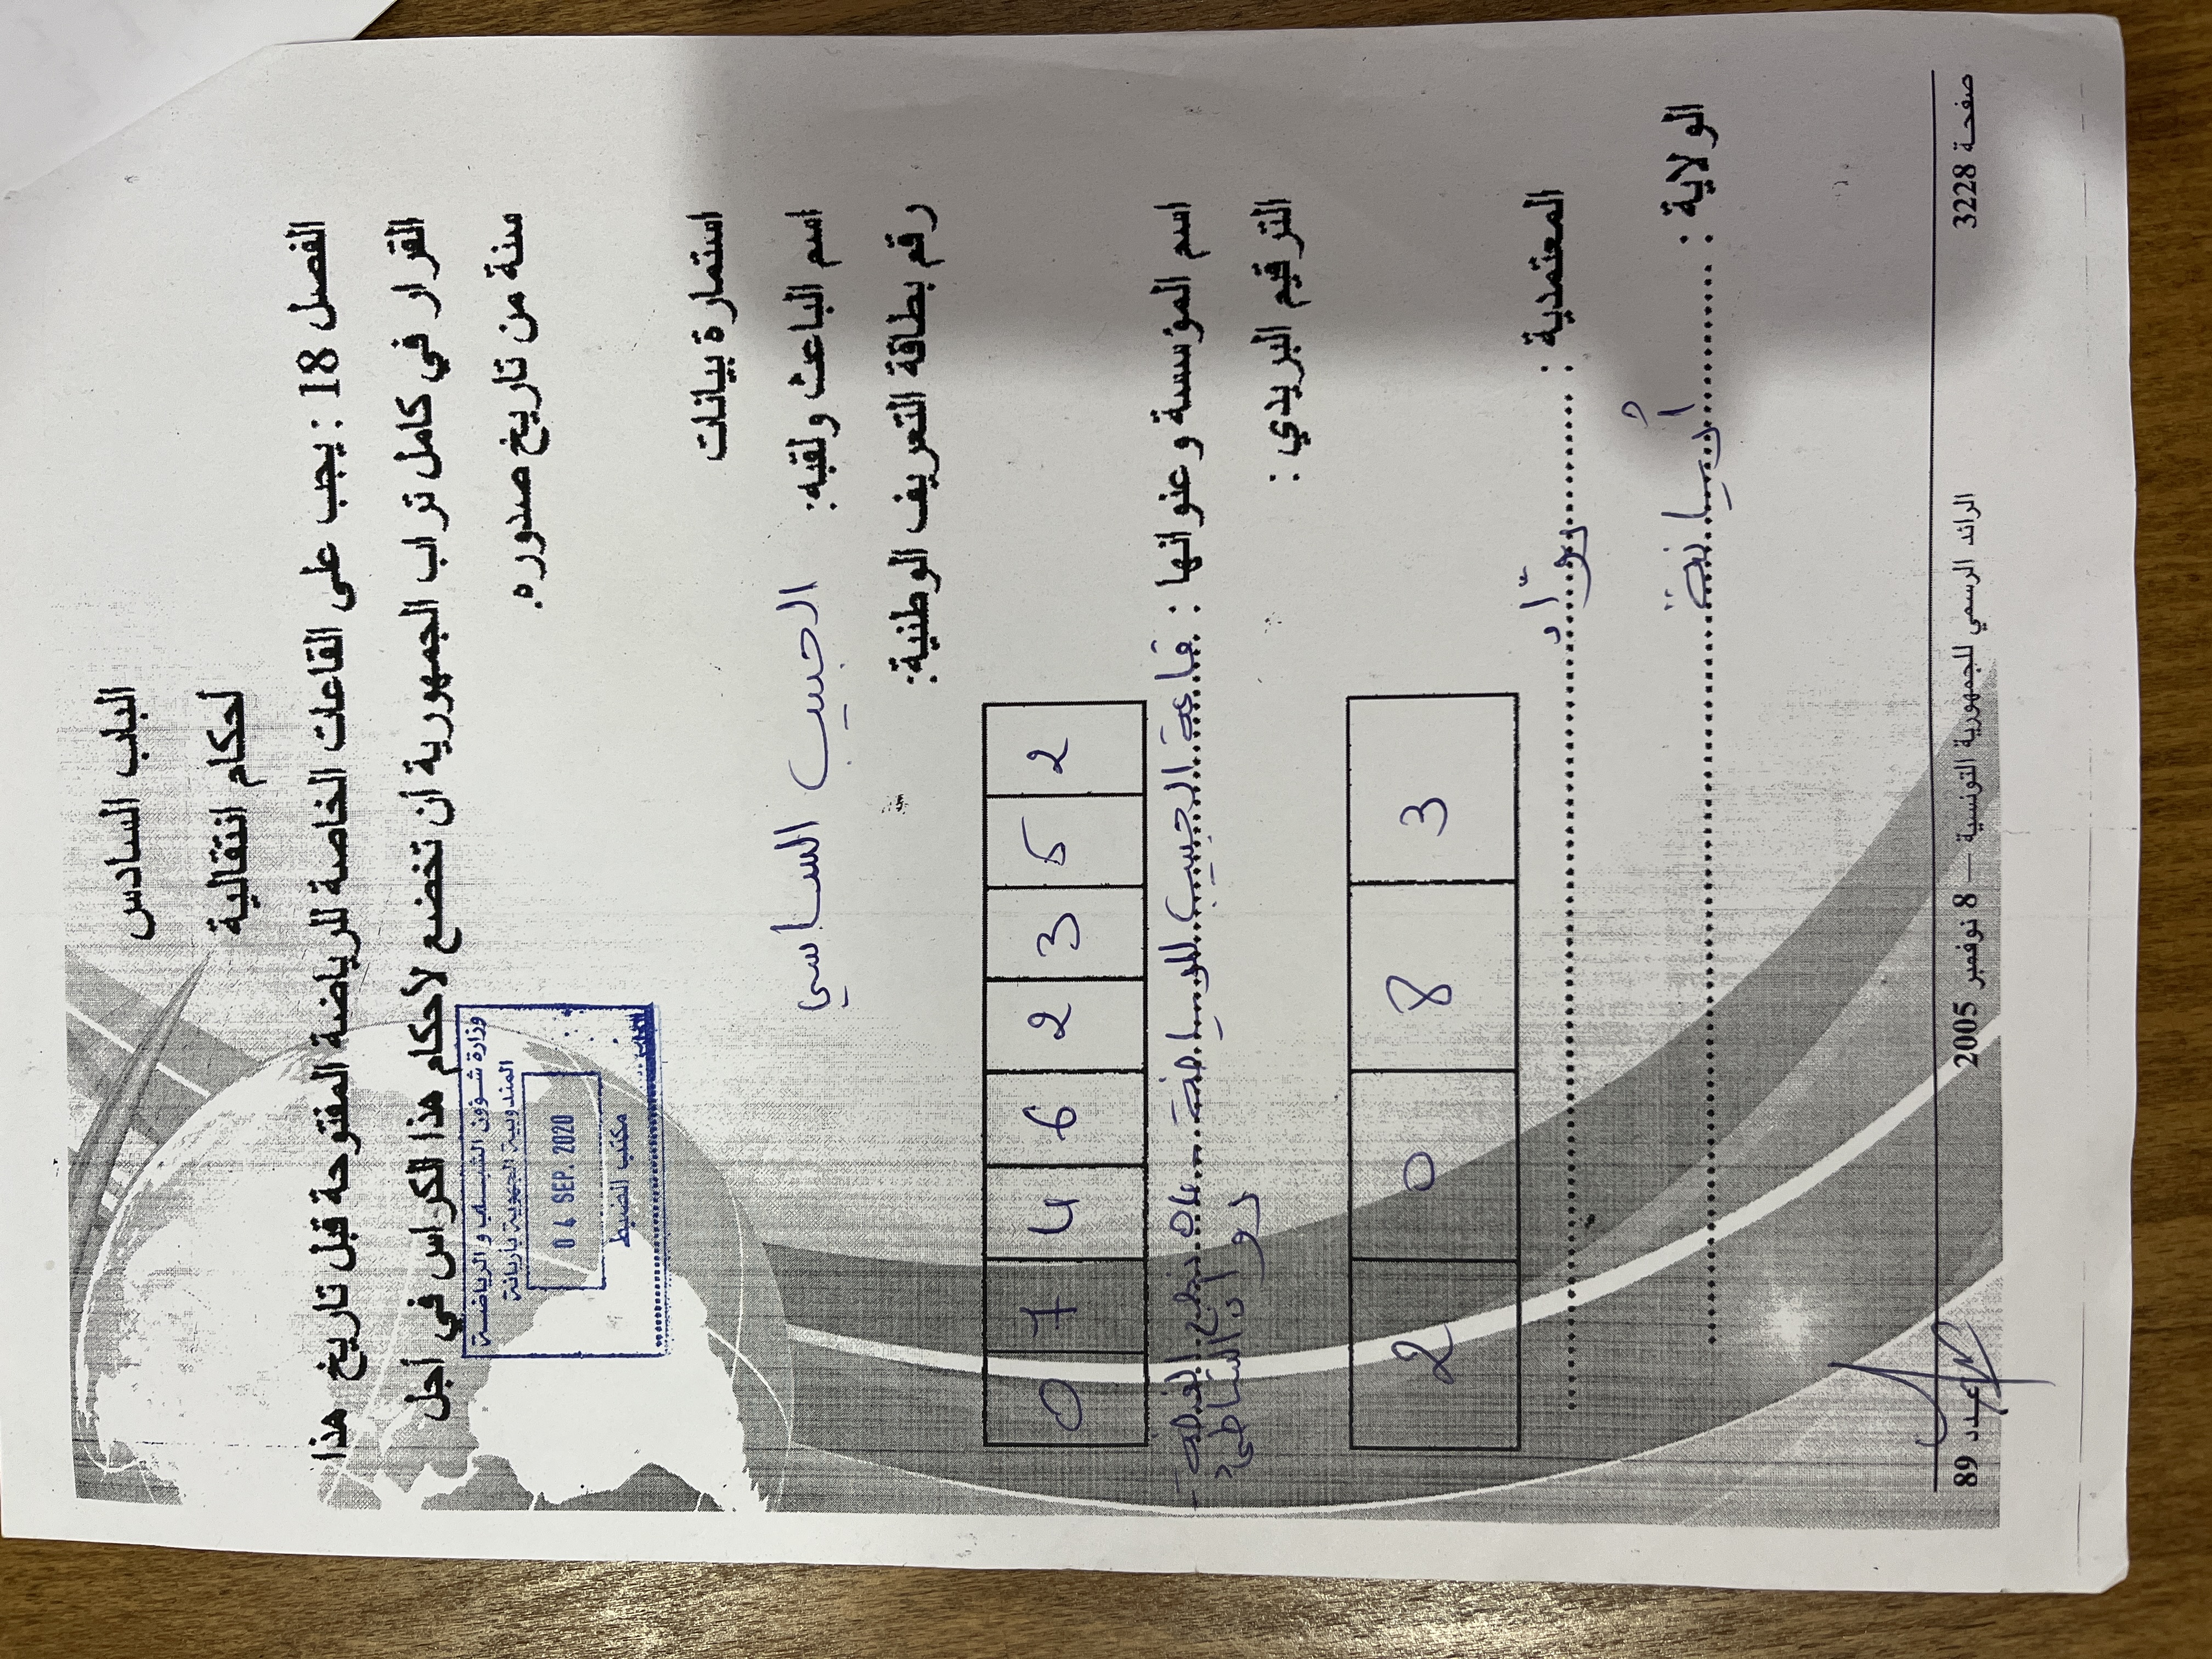 الباب السادس
أحكام انتقالية
الفصل 18 : يجب على القاعات الخاصة للرياضة المفتوحة قبل تاريخ هذا
القرار في كامل تراب الجمهورية أن تخضع لأحكام هذا الكراس في أجل
سنة من تاريخ صدوره.
وزارة شؤون الشباب و الرياضة
المندوبية الجهوية بأريانة
0 4 SEP. 2020
مكتب الضبط
استمارة بيانات
اسم الباعث ولقبه: الحبيب الساسي
رقم بطاقة التعريف الوطنية:
0 7 4 6 2 3 5 2
اسم المؤسسة و عنوانها : قاعة الحبيب للرياضة
روّاد الشاطئ
الترقيم البريدي :
2 0 8 3
المعتمدية : روّاد
الولاية : أريانة
صفحة 3228 الرائد الرسمي للجمهورية التونسية — 8 نوفمبر 2005 عدد 89